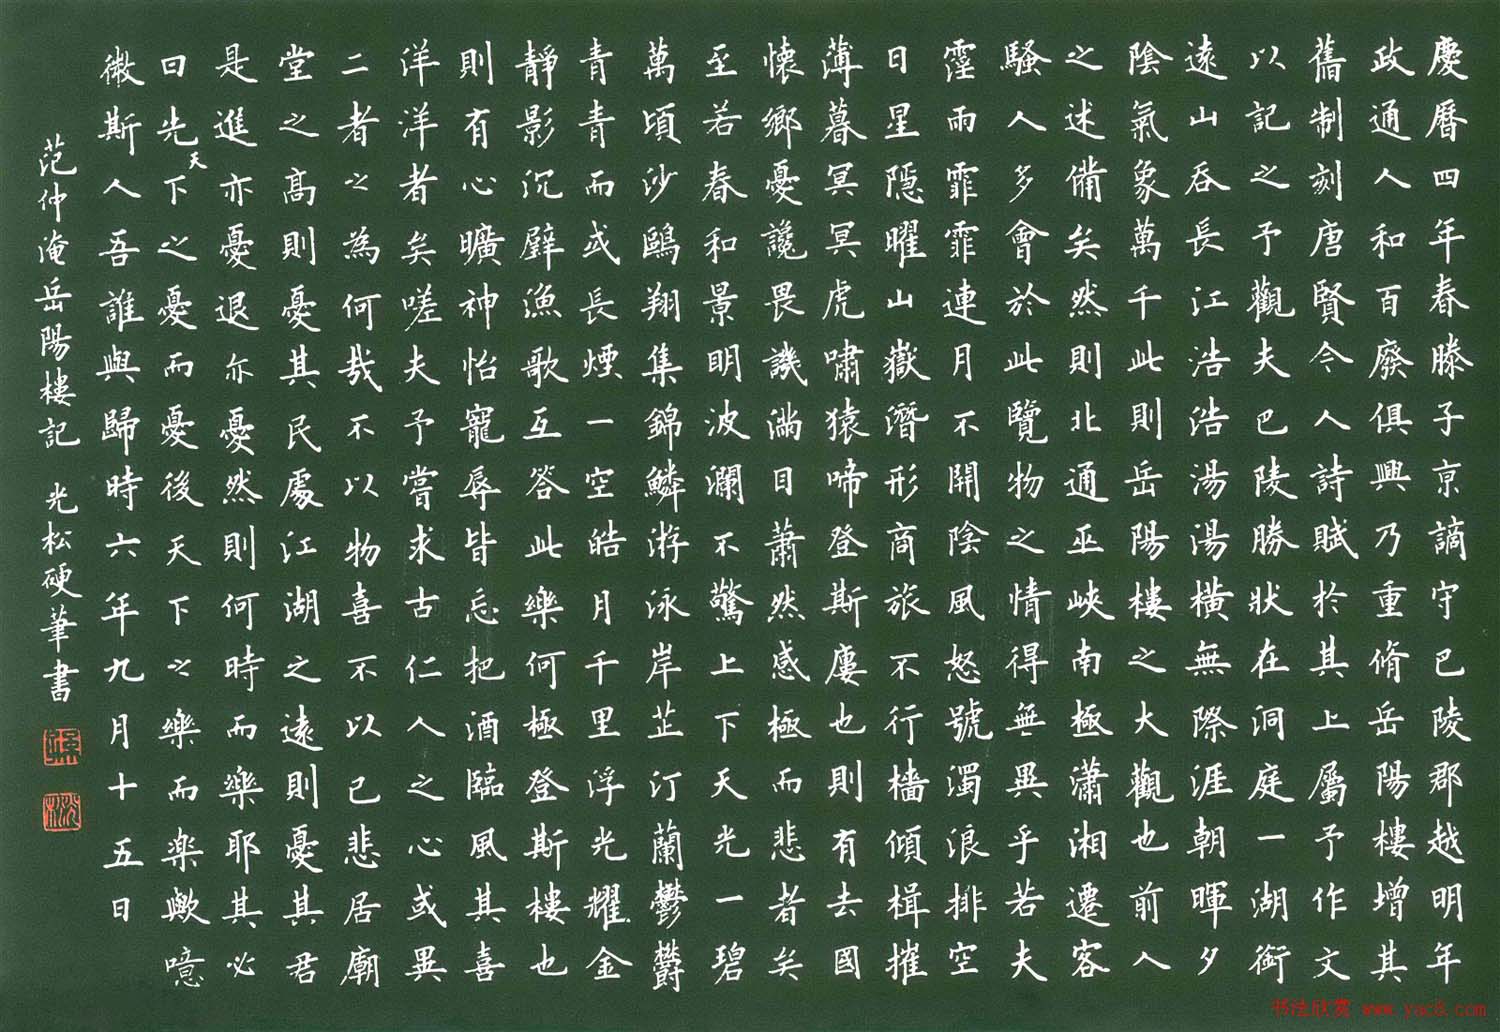 慶曆四年春滕子京謫守巴陵郡越明年
政通人和百廢俱興乃重脩岳陽樓增其
舊制刻唐賢今人詩賦於其上屬予作文
以記之予觀夫巴陵勝狀在洞庭一湖銜
遠山吞長江浩浩湯湯橫無際涯朝暉夕
陰氣象萬千此則岳陽樓之大觀也前人
之述備矣然則北通巫峽南極瀟湘遷客
騷人多會於此覽物之情得無異乎若夫
霪雨霏霏連月不開陰風怒號濁浪排空
日星隱曜山嶽潛形商旅不行檣傾楫摧
薄暮冥冥虎嘯猿啼登斯廔也則有去國
懷鄉憂讒畏譏滿目蕭然感極而悲者矣
至若春和景明波瀾不驚上下天光一碧
萬頃沙鷗翔集錦鱗游泳岸芷汀蘭鬱鬱
青青而或長煙一空皓月千里浮光耀金
靜影沉璧漁歌互答此樂何極登斯樓也
則有心曠神怡寵辱皆忘把酒臨風其喜
洋洋者矣嗟夫予嘗求古仁人之心或異
二者之為何哉不以物喜不以己悲居廟
堂之高則憂其民處江湖之遠則憂其君
是進亦憂退亦憂然則何時而樂耶其必
曰先天下之憂而憂後天下之樂而樂歟噫
微斯人吾誰與歸時六年九月十五日
范仲淹岳陽樓記 光松硬筆書
书法欣赏 www.yac8.com